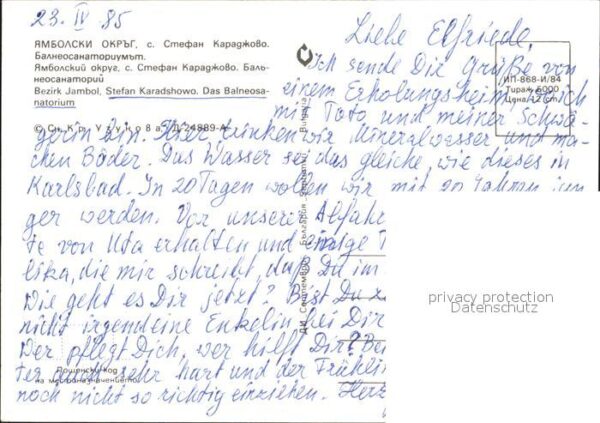 23. IV. 85
ЯМБОЛСКИ ОКРЪГ, с. Стефан Караджово.
Балнеосанаториумът.
Ямболский округ, с. Стефан Караджово. Баль-
неосанаторий
Bezirk Jambol, Stefan Karadshowo. Das Balneosa-
natorium
© Сн. Кр. Узунова Д-24889-А
ДИ „Септември“ България Bulgaria
ИП-868-И/84
Тираж 5000
Цена 12 cm.
Liebe Elfriede,
Ich sende Dir Grüße von
einem Erholungsheim, wo ich
mit Toto und meiner Schwä-
gerin bin. Hier trinken wir Mineralwasser und ma-
chen Bäder. Das Wasser sei das gleiche, wie dieses in
Karlsbad. In 20 Tagen wollen wir mit 20 Jahren jün
ger werden. Vor unserer Abfahr
te von Uta erhalten und einige
lika, die mir schreibt, daß Du im
Wie geht es Dir jetzt? Bist Du z
nicht irgendeine Enkelin bei Dir
Wer pflegt Dich, wer hilft Dir? Bei
ter auch sehr hart und der Frühlin
noch nicht so richtig einziehen. Herz
Пощенски код
на местоназначението
privacy protection
Datenschutz